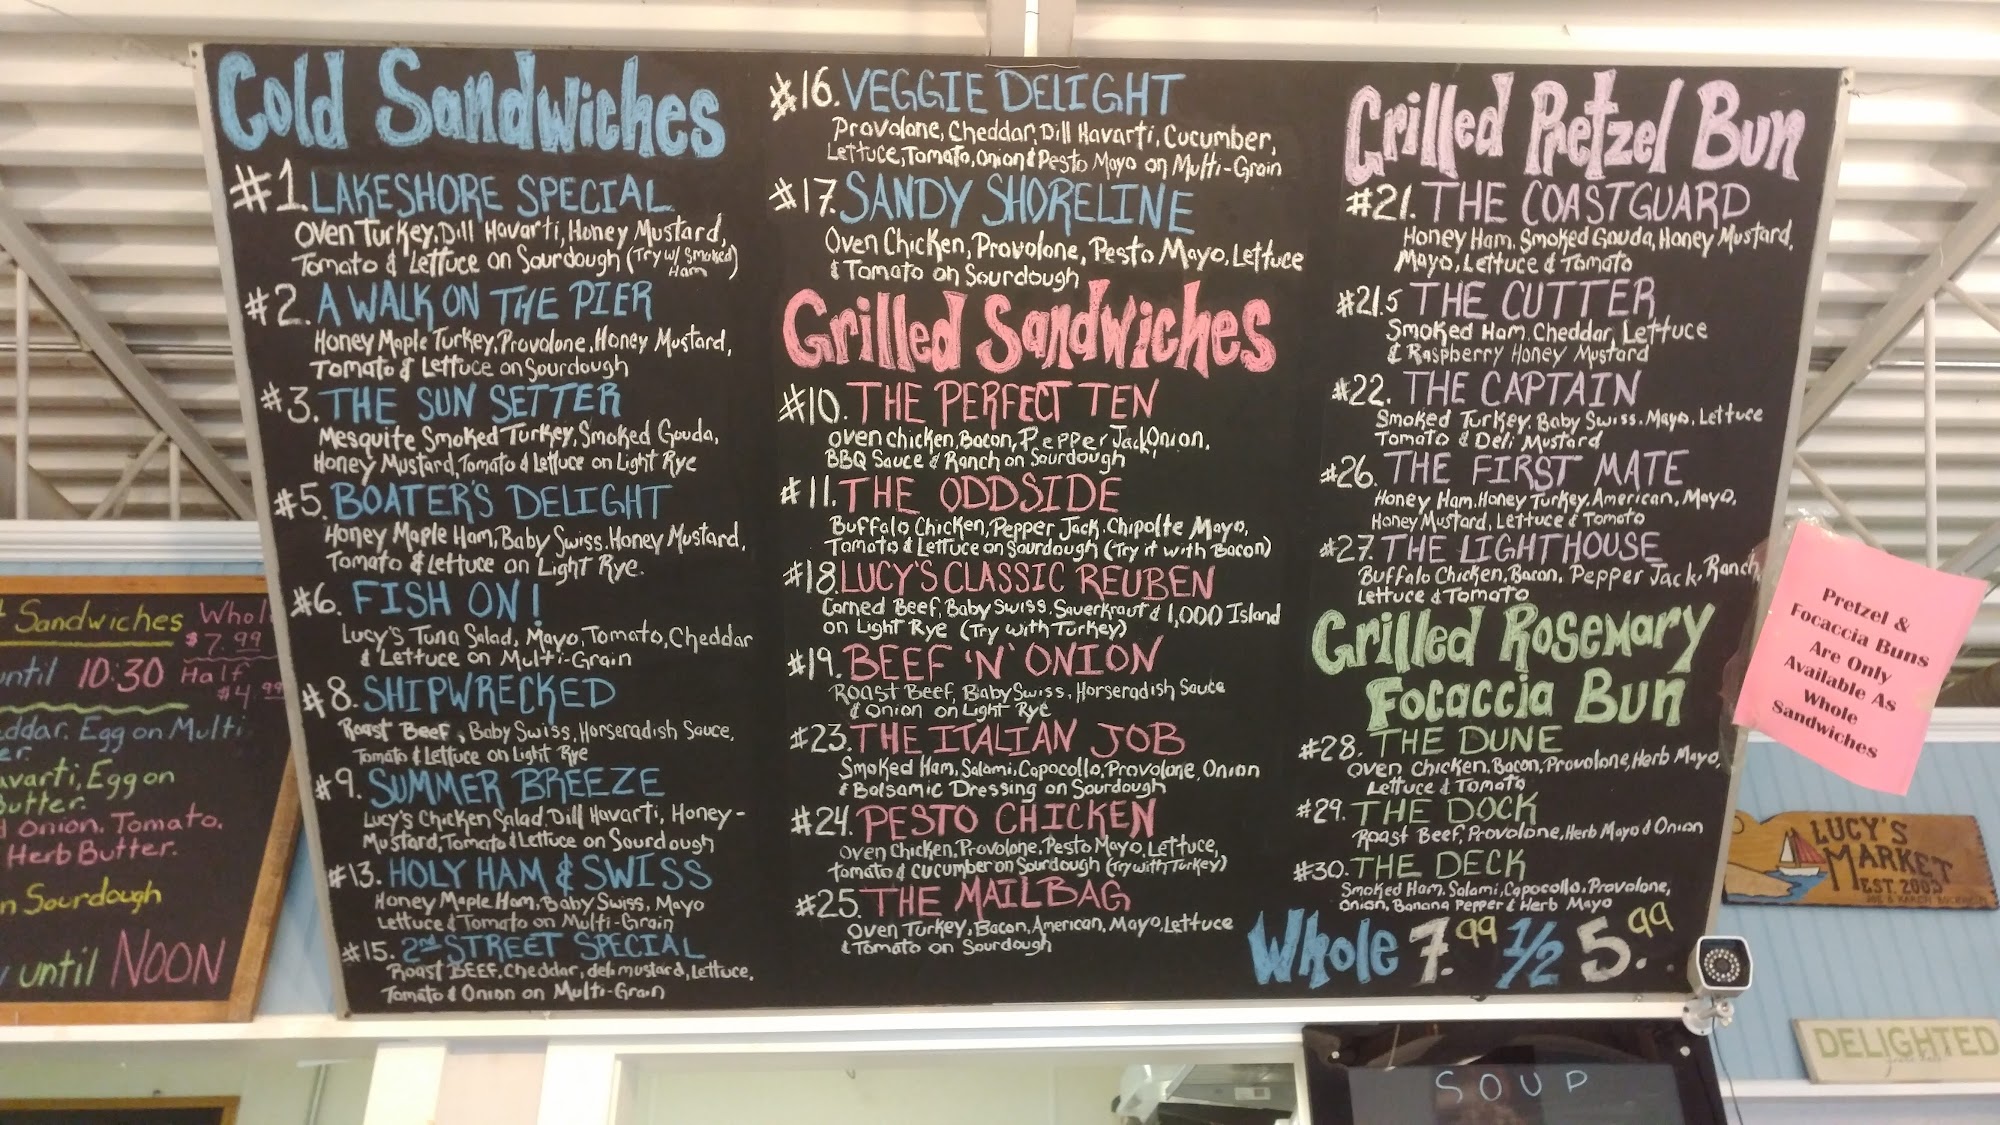 Cold Sandwiches
#1. LAKESHORE SPECIAL
Oven Turkey, Dill Havarti, Honey Mustard,
Tomato & Lettuce on Sourdough (Try w/ Smoked Ham)
#2. A WALK ON THE PIER
Honey Maple Turkey, Provolone, Honey Mustard,
Tomato & Lettuce on Sourdough
#3. THE SUN SETTER
Mesquite Smoked Turkey, Smoked Gouda,
Honey Mustard, Tomato & Lettuce on Light Rye
#5. BOATER'S DELIGHT
Honey Maple Ham, Baby Swiss, Honey Mustard,
Tomato & Lettuce on Light Rye.
#6. FISH ON!
Lucy's Tuna Salad, Mayo, Tomato, Cheddar
& Lettuce on Multi-Grain
#8. SHIPWRECKED
Roast Beef, Baby Swiss, Horseradish Sauce,
Tomato & Lettuce on Light Rye
#9. SUMMER BREEZE
Lucy's Chicken Salad, Dill Havarti, Honey-
Mustard, Tomato & Lettuce on Sourdough
#13. HOLY HAM & SWISS
Honey Maple Ham, Baby Swiss, Mayo
Lettuce & Tomato on Multi-Grain
#15. 2nd STREET SPECIAL
Roast BEEF, Cheddar, deli mustard, Lettuce,
Tomato & Onion on Multi-Grain
#16. VEGGIE DELIGHT
Provolone, Cheddar, Dill Havarti, Cucumber,
Lettuce, Tomato, Onion & Pesto Mayo on Multi-Grain
#17. SANDY SHORELINE
Oven Chicken, Provolone, Pesto Mayo, Lettuce
& Tomato on Sourdough
Grilled Sandwiches
#10. THE PERFECT TEN
Oven chicken, Bacon, Pepper Jack, Onion,
BBQ Sauce & Ranch on Sourdough
#11. THE ODDSIDE
Buffalo Chicken, Pepper Jack, Chipolte Mayo,
Tomato & Lettuce on Sourdough (Try it with Bacon)
#18. LUCY'S CLASSIC REUBEN
Corned Beef, Baby Swiss, Sauerkraut & 1,000 Island
on Light Rye (Try with Turkey)
#19. BEEF 'N' ONION
Roast Beef, Baby Swiss, Horseradish Sauce
& Onion on Light Rye
#23. THE ITALIAN JOB
Smoked Ham, Salami, Capocollo, Provolone, Onion
& Balsamic Dressing on Sourdough
#24. PESTO CHICKEN
Oven Chicken, Provolone, Pesto Mayo, Lettuce,
tomato & cucumber on Sourdough (Try with Turkey)
#25. THE MAILBAG
Oven Turkey, Bacon, American, Mayo, Lettuce
& Tomato on Sourdough
Grilled Pretzel Bun
#21. THE COASTGUARD
Honey Ham, Smoked Gouda, Honey Mustard,
Mayo, Lettuce & Tomato
#21.5 THE CUTTER
Smoked Ham, Cheddar, Lettuce
& Raspberry Honey Mustard
#22. THE CAPTAIN
Smoked Turkey, Baby Swiss, Mayo, Lettuce
Tomato & Deli Mustard
#26. THE FIRST MATE
Honey Ham, Honey Turkey, American, Mayo,
Honey Mustard, Lettuce & Tomato
#27. THE LIGHTHOUSE
Buffalo Chicken, Bacon, Pepper Jack, Ranch
Lettuce & Tomato
Grilled Rosemary
Focaccia Bun
#28. THE DUNE
Oven Chicken, Bacon, Provolone, Herb Mayo,
Lettuce & Tomato
#29. THE DOCK
Roast Beef, Provolone, Herb Mayo & Onion
#30. THE DECK
Smoked Ham, Salami, Capocollo, Provolone,
Onion, Banana Pepper & Herb Mayo
Whole 7.99 1/2 5.99
Pretzel &
Focaccia Buns
Are Only
Available As
Whole
Sandwiches
LUCY'S
MARKET
EST. 2003
DELIGHTED
SOUP
Sandwiches Whole
$7.99
until 10:30 Half
$4.99
Egg on Multi
Egg on
Butter.
Onion, Tomato,
Herb Butter.
on Sourdough
until NOON